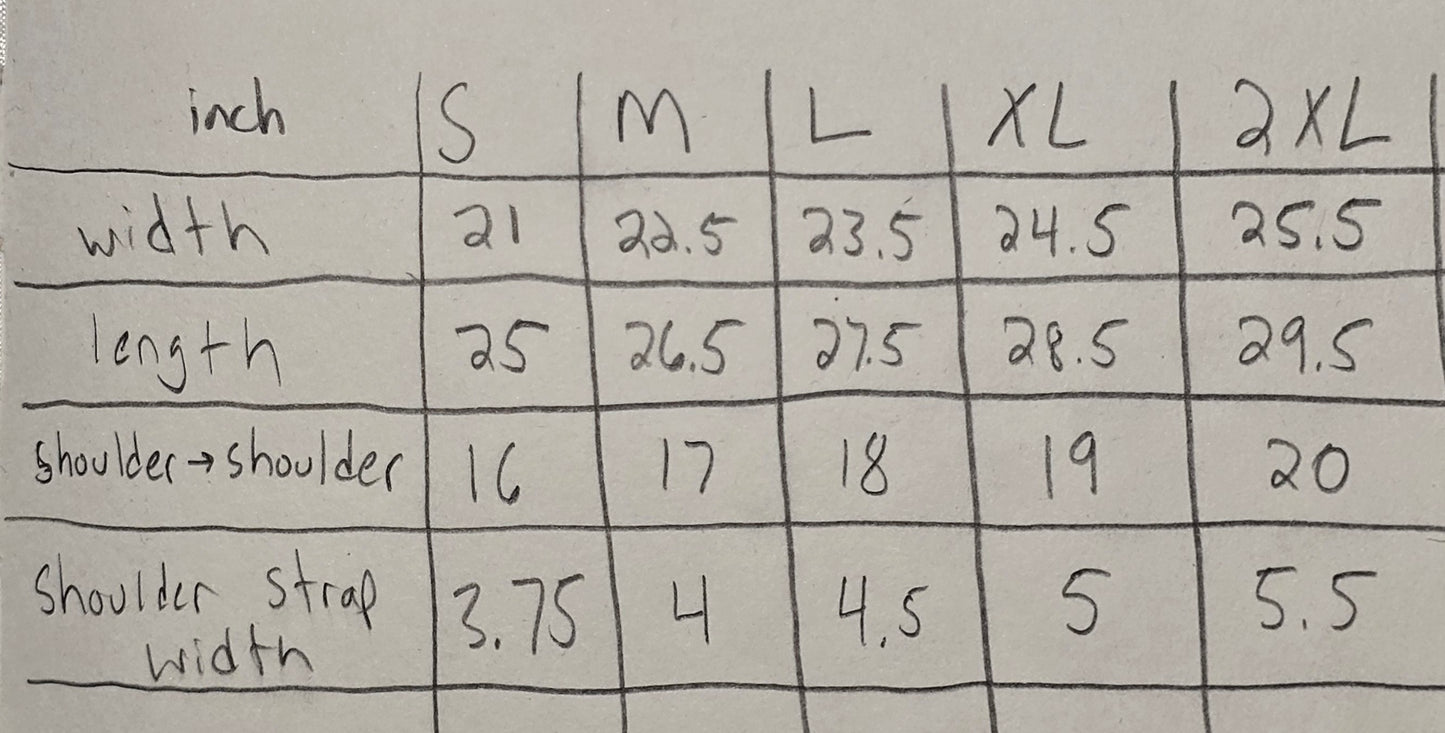 inch S M L XL 2XL
width 21 22.5 23.5 24.5 25.5
length 25 26.5 27.5 28.5 29.5
shoulder→shoulder 16 17 18 19 20
Shoulder Strap 3.75 4 4.5 5 5.5
width